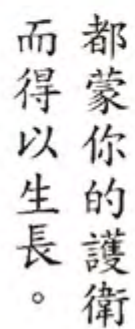 都蒙你的護衛
而得以生長。